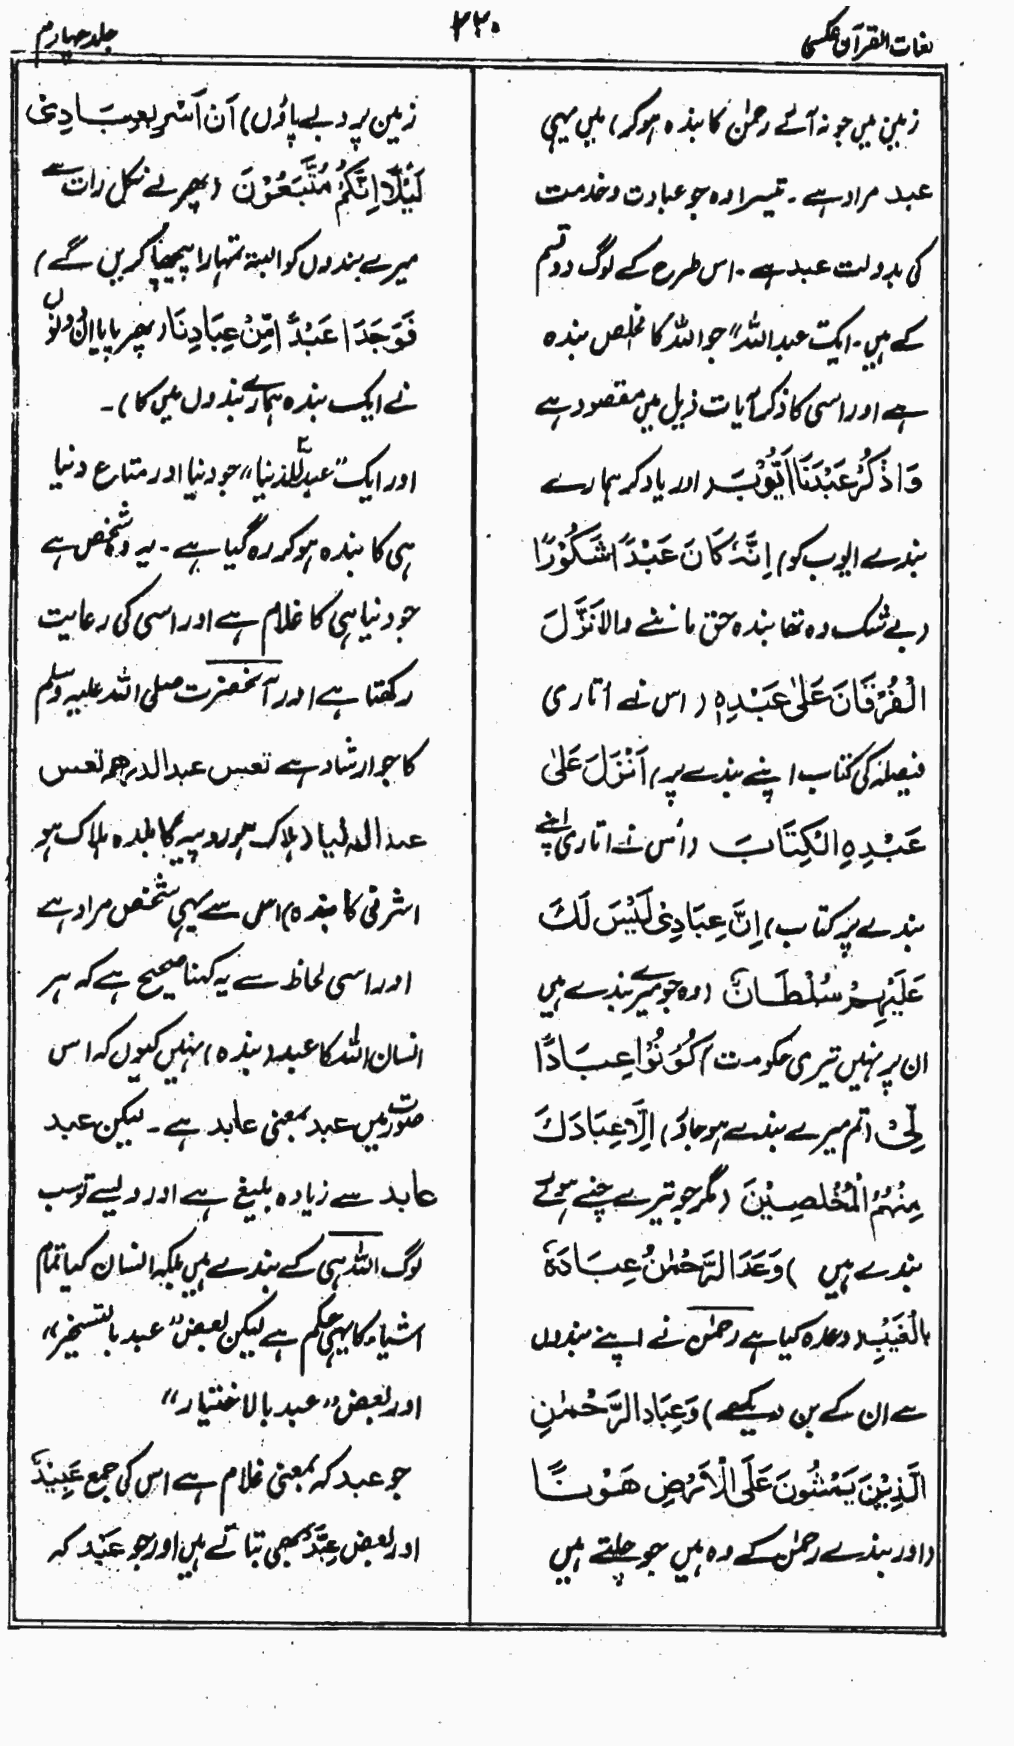 لغات القرآن عکسی
۲۲۰
جلد چہارم
زمین میں جو نہ آئے رحمٰن کا بندہ ہو کر) میں یہی
عبد مراد ہے ۔ تیسرا وہ جو عبادت و خدمت
کی بدولت عبد ہے ۔ اس طرح کے لوگ دو قسم
کے ہیں ۔ ایک عبد اللہ" جو اللہ کا مخلص بندہ
ہے اور اسی کا ذکر آیات ذیل میں مقصود ہے
وَاذْكُرْ عَبْدَنَا اَيُّوْبَ (اور یاد کر ہمارے
بندے ایوب کو) اِنَّهٗ كَانَ عَبْدًا شَكُوْرًا
(بے شک وہ تھا بندہ حق ماننے والا نَزَّلَ
الْفُرْقَانَ عَلٰى عَبْدِهٖ (اس نے اتاری
فیصلہ کی کتاب اپنے بندے پر) اَنْزَلَ عَلٰى
عَبْدِهِ الْكِتَابَ (اُس نے اتاری اپنے
بندے پر کتاب) اِنَّ عِبَادِىْ لَيْسَ لَكَ
عَلَيْهِمْ سُلْطَانٌ (وہ جو میرے بندے ہیں
ان پر نہیں تیری حکومت) كُوْنُوْا عِبَادًا
لِّىْ (تم میرے بندے ہو جاؤ) اِلَّا عِبَادَكَ
مِنْهُمُ الْمُخْلَصِيْنَ (مگر جو تیرے چنے ہوئے
بندے ہیں ) وَعَدَ الرَّحْمٰنُ عِبَادَهٗ
بِالْغَيْبِ (وعدہ کیا ہے رحمٰن نے اپنے بندوں
سے ان کے بن دیکھے) وَعِبَادُ الرَّحْمٰنِ
الَّذِيْنَ يَمْشُونَ عَلَى الْاَرْضِ هَوْنًا
(اور بندے رحمٰن کے وہ ہیں جو چلتے ہیں
زمین پر دبے پاؤں) اَنْ اَسْرِ بِعِبَادِىْ
لَيْلًا اِنَّكُمْ مُّتَّبَعُوْنَ (پھر لے نکل رات سے
میرے بندوں کو البتہ تمہارا پیچھا کریں گے)
فَوَجَدَا عَبْدًا مِّنْ عِبَادِنَا (پھر پایا ان دونوں
نے ایک بندہ ہمارے بندوں میں کا)۔
اور ایک "عبد للدنیا" جو دنیا اور متاع دنیا
ہی کا بندہ ہو کر رہ گیا ہے ۔ یہ وہ شخص ہے
جو دنیا ہی کا غلام ہے اور اسی کی رعایت
رکھتا ہے اور آنحضرت صلی اللہ علیہ وسلم
کا جو ارشاد ہے تعس عبد الدرهم تعس
عبد الدنیا (ہلاک ہو روپیہ کا بندہ ہلاک ہو
اشرفی کا بندہ) اس سے یہی شخص مراد ہے
اور اسی لحاظ سے یہ کہنا صحیح ہے کہ ہر
انسان اللہ کا عبد (بندہ) نہیں کیوں کہ اس
صورت میں عبد بمعنی عابد ہے ۔ لیکن عبد
عابد سے زیادہ بلیغ ہے اور ویسے تو سب
لوگ اللہ ہی کے بندے ہیں بلکہ انسان کیا تمام
اشیاء کا یہی حکم ہے لیکن بعض "عبد بالتسخیر"
اور بعض "عبد بالاختیار"
جو عبد کہ بمعنی غلام ہے اس کی جمع عَبِيْدٌ
اور بعض عِبِدٌّ بھی بتاتے ہیں اور جو عَبْد کہ